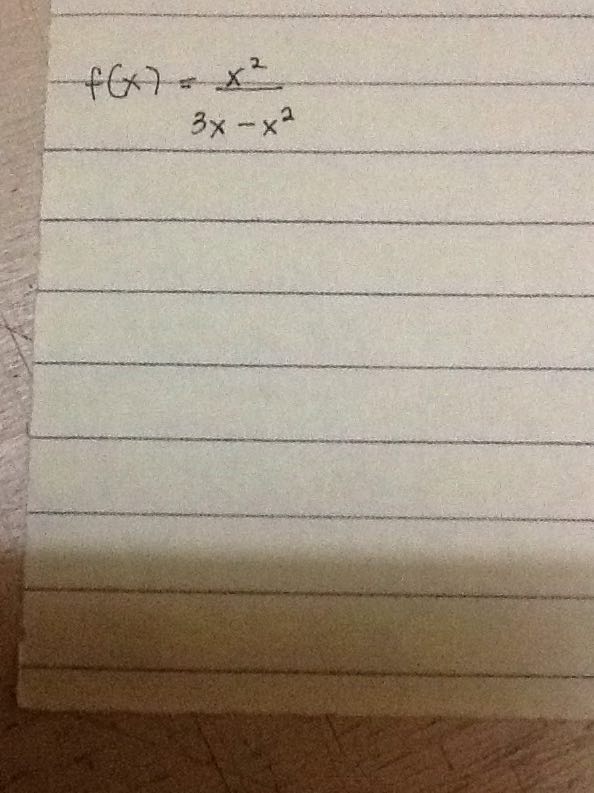 f(x) = x²
3x - x²